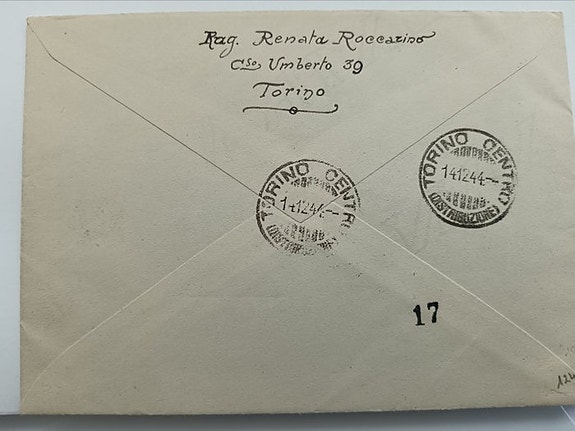 Rag. Renata Roccarino
Cso Umberto 39
Torino
TORINO CENTRO
14 12 44.-
(DISTRIBUZIONE)
TORINO CENTRO
14 12 44.-
(DISTRIBUZIONE)
17